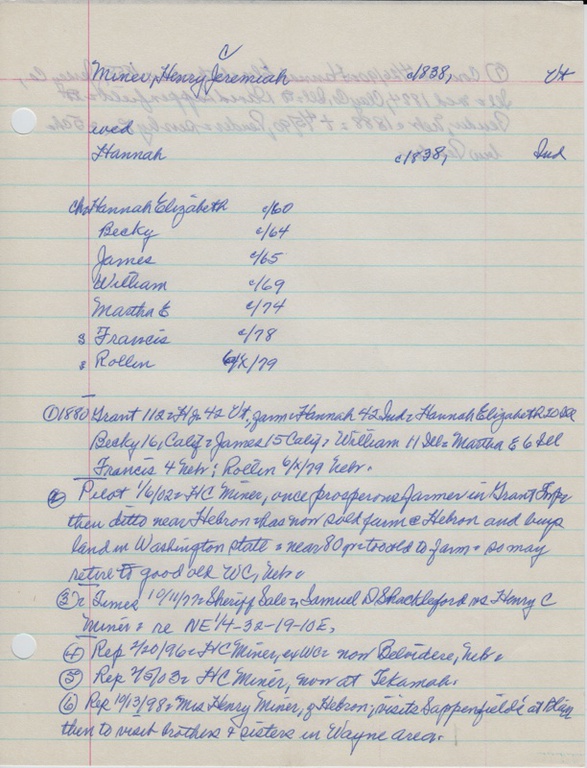 C
Miner, Henry Jeremiah c1838, Vt
wed
Hannah c1838, Ind
ch: Hannah Elizabeth c/60
Becky c/64
James c/65
William c/69
Martha E c/74
s Francis c/78
s Rollin /X/79
① 1880 Grant 112 = HJ = 42 Vt, farm = Hannah 42 Ind = Hannah Elizabeth 20
Becky 16, Calif = James 15 Calif = William 11 Ill = Martha E 6 Ill
Francis 4 Nebr; Rollin 6/X/79 Nebr.
② Pilot 1/6/03 = HC Miner, once prosperous farmer in Grant Twp
then ditto near Hebron has now sold farm @ Hebron and buys
land in Washington state = near 80 yr = too old to farm = so may
retire to good old WC, Nebr.
③ Times 10/11/77 = Sheriff Sale = Samuel D Shackleford vs Henry C
Miner = re NE 1/4-32-19-10E,
④ Rep 2/20/96 = HC Miner, ex WC = now Belvidere, Nebr.
⑤ Rep 2/5/03 = HC Miner, now at Tekamah.
⑥ Rep 10/13/98 = Mrs Henry Miner, of Hebron, visits Sappenfields at Blair
then to visit brothers & sisters in Wayne area.